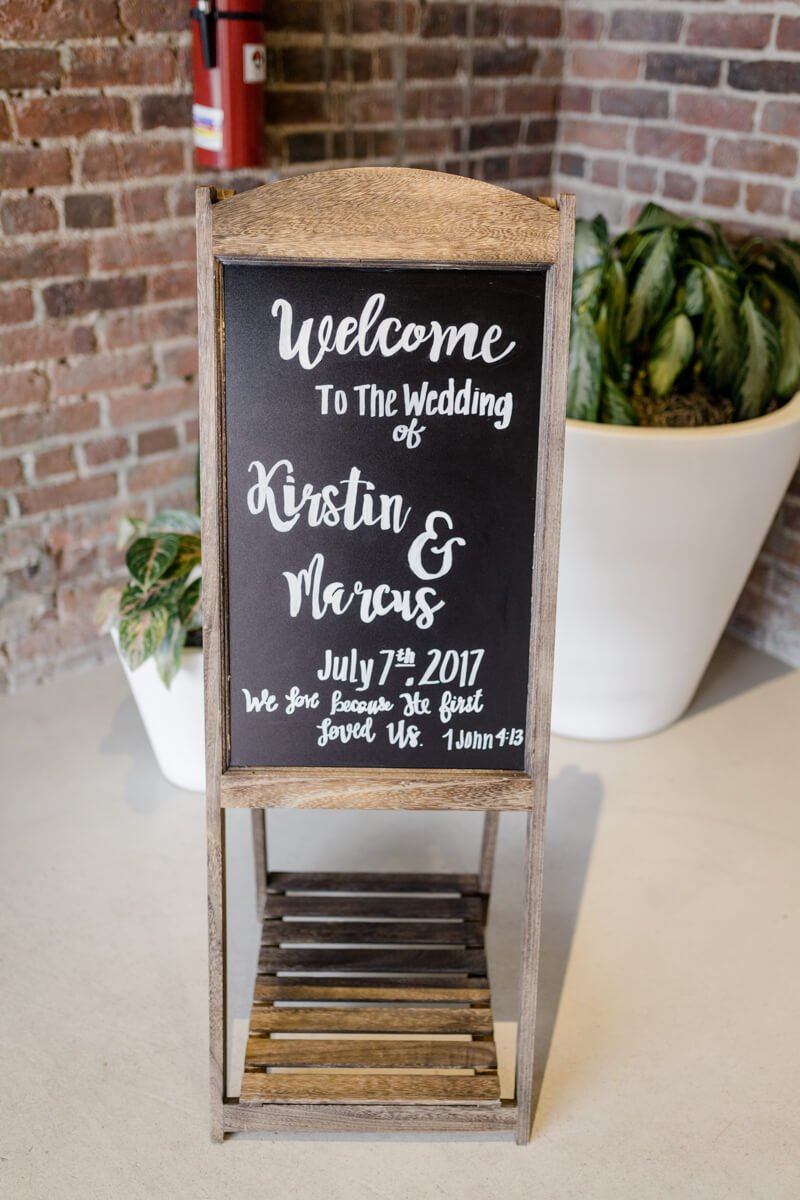 Welcome
To The Wedding
of
Kirstin
&
Marcus
July 7th, 2017
We love because He first
loved Us. 1 John 4:13